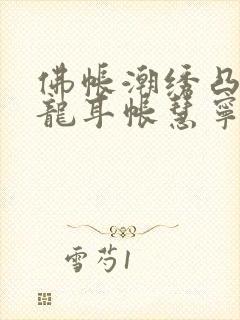 佛帐潮绣凸
龍耳帐慧寧
雪芍1